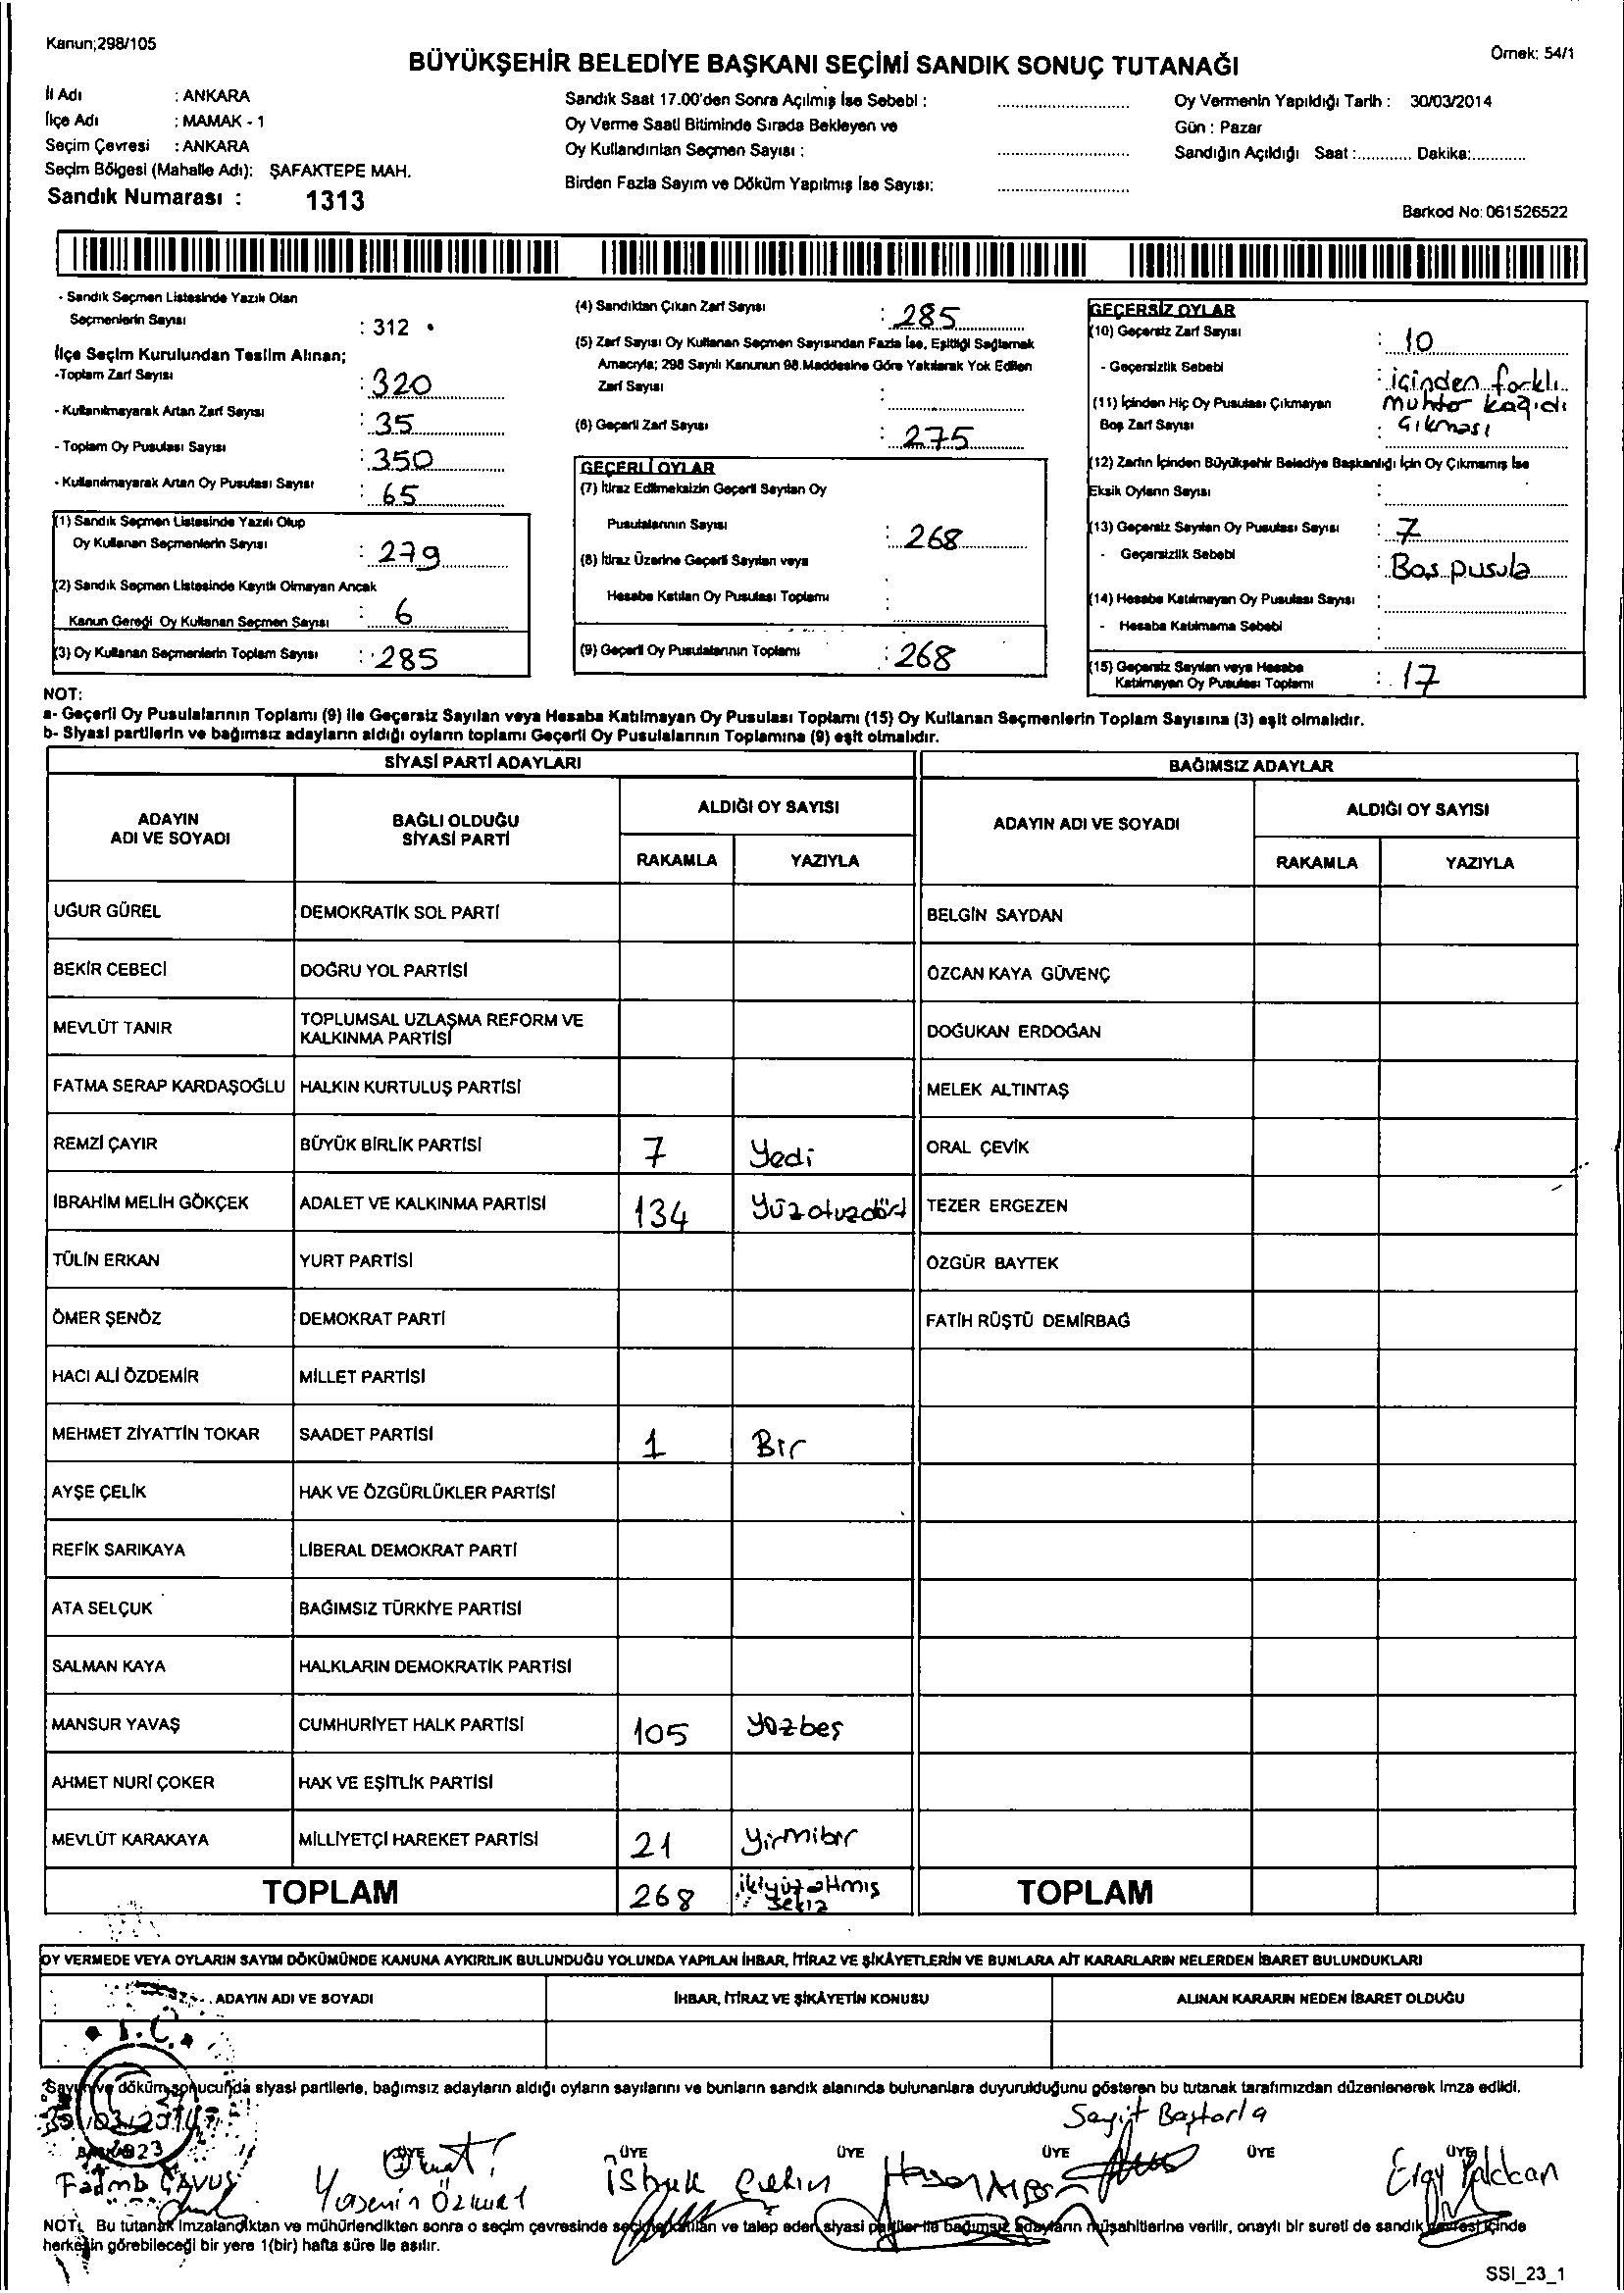 Kanun;298/105
Örnek: 54/1
BÜYÜKŞEHİR BELEDİYE BAŞKANI SEÇİMİ SANDIK SONUÇ TUTANAĞI
İl Adı : ANKARA
İlçe Adı : MAMAK - 1
Seçim Çevresi : ANKARA
Seçim Bölgesi (Mahalle Adı): ŞAFAKTEPE MAH.
Sandık Numarası : 1313
Sandık Saat 17.00'den Sonra Açılmış İse Sebebi :
Oy Verme Saati Bitiminde Sırada Bekleyen ve
Oy Kullandırılan Seçmen Sayısı :
Birden Fazla Sayım ve Döküm Yapılmış İse Sayısı:
Oy Vermenin Yapıldığı Tarih : 30/03/2014
Gün : Pazar
Sandığın Açıldığı Saat :............ Dakika:............
Barkod No: 061526522
- Sandık Seçmen Listesinde Yazılı Olan
Seçmenlerin Sayısı : 312
İlçe Seçim Kurulundan Teslim Alınan;
-Toplam Zarf Sayısı : 320
- Kullanılmayarak Artan Zarf Sayısı : 35
- Toplam Oy Pusulası Sayısı : 350
- Kullanılmayarak Artan Oy Pusulası Sayısı : 65
(1) Sandık Seçmen Listesinde Yazılı Olup
Oy Kullanan Seçmenlerin Sayısı : 279
(2) Sandık Seçmen Listesinde Kayıtlı Olmayan Ancak
Kanun Gereği Oy Kullanan Seçmen Sayısı : 6
(3) Oy Kullanan Seçmenlerin Toplam Sayısı : 285
(4) Sandıktan Çıkan Zarf Sayısı : 285
(5) Zarf Sayısı Oy Kullanan Seçmen Sayısından Fazla İse, Eşitliği Sağlamak
Amacıyla; 298 Sayılı Kanunun 98.Maddesine Göre Yakılarak Yok Edilen
Zarf Sayısı :
(6) Geçerli Zarf Sayısı : 275
GEÇERLİ OYLAR
(7) İtiraz Edilmeksizin Geçerli Sayılan Oy
Pusulalarının Sayısı : 268
(8) İtiraz Üzerine Geçerli Sayılan veya
Hesaba Katılan Oy Pusulası Toplamı :
(9) Geçerli Oy Pusulalarının Toplamı : 268
GEÇERSİZ OYLAR
(10) Geçersiz Zarf Sayısı : 10
- Geçersizlik Sebebi : içinden farklı
muhtar kağıdı
çıkması
(11) İçinden Hiç Oy Pusulası Çıkmayan
Boş Zarf Sayısı :
(12) Zarfın İçinden Büyükşehir Belediye Başkanlığı İçin Oy Çıkmamış İse
Eksik Oyların Sayısı :
(13) Geçersiz Sayılan Oy Pusulası Sayısı : 7
- Geçersizlik Sebebi : Boş pusula
(14) Hesaba Katılmayan Oy Pusulası Sayısı :
- Hesaba Katılmama Sebebi :
(15) Geçersiz Sayılan veya Hesaba
Katılmayan Oy Pusulası Toplamı : 17
NOT:
a- Geçerli Oy Pusulalarının Toplamı (9) ile Geçersiz Sayılan veya Hesaba Katılmayan Oy Pusulası Toplamı (15) Oy Kullanan Seçmenlerin Toplam Sayısına (3) eşit olmalıdır.
b- Siyasi partilerin ve bağımsız adayların aldığı oyların toplamı Geçerli Oy Pusulalarının Toplamına (9) eşit olmalıdır.
SİYASİ PARTİ ADAYLARI
BAĞIMSIZ ADAYLAR
ADAYIN
ADI VE SOYADI
BAĞLI OLDUĞU
SİYASİ PARTİ
ALDIĞI OY SAYISI
RAKAMLA YAZIYLA
ADAYIN ADI VE SOYADI
ALDIĞI OY SAYISI
RAKAMLA YAZIYLA
UĞUR GÜREL DEMOKRATİK SOL PARTİ BELGİN SAYDAN
BEKİR CEBECİ DOĞRU YOL PARTİSİ ÖZCAN KAYA GÜVENÇ
MEVLÜT TANIR TOPLUMSAL UZLAŞMA REFORM VE
KALKINMA PARTİSİ DOĞUKAN ERDOĞAN
FATMA SERAP KARDAŞOĞLU HALKIN KURTULUŞ PARTİSİ MELEK ALTINTAŞ
REMZİ ÇAYIR BÜYÜK BİRLİK PARTİSİ 7 Yedi ORAL ÇEVİK
İBRAHİM MELİH GÖKÇEK ADALET VE KALKINMA PARTİSİ 134 Yüzotuzdört TEZER ERGEZEN
TÜLİN ERKAN YURT PARTİSİ ÖZGÜR BAYTEK
ÖMER ŞENÖZ DEMOKRAT PARTİ FATİH RÜŞTÜ DEMİRBAĞ
HACI ALİ ÖZDEMİR MİLLET PARTİSİ
MEHMET ZİYATTİN TOKAR SAADET PARTİSİ 1 Bir
AYŞE ÇELİK HAK VE ÖZGÜRLÜKLER PARTİSİ
REFİK SARIKAYA LİBERAL DEMOKRAT PARTİ
ATA SELÇUK BAĞIMSIZ TÜRKİYE PARTİSİ
SALMAN KAYA HALKLARIN DEMOKRATİK PARTİSİ
MANSUR YAVAŞ CUMHURİYET HALK PARTİSİ 105 Yüzbeş
AHMET NURİ ÇOKER HAK VE EŞİTLİK PARTİSİ
MEVLÜT KARAKAYA MİLLİYETÇİ HAREKET PARTİSİ 21 Yirmibir
TOPLAM 268 ikiyüzaltmış
sekiz
TOPLAM
OY VERMEDE VEYA OYLARIN SAYIM DÖKÜMÜNDE KANUNA AYKIRILIK BULUNDUĞU YOLUNDA YAPILAN İHBAR, İTİRAZ VE ŞİKÂYETLERİN VE BUNLARA AİT KARARLARIN NELERDEN İBARET BULUNDUKLARI
ADAYIN ADI VE SOYADI İHBAR, İTİRAZ VE ŞİKÂYETİN KONUSU ALINAN KARARIN NEDEN İBARET OLDUĞU
T.C.
Sayım ve döküm sonucunda siyasi partilerle, bağımsız adayların aldığı oyların sayılarını ve bunların sandık alanında bulunanlara duyurulduğunu gösteren bu tutanak tarafımızdan düzenlenerek imza edildi.
30/03/2014
BAŞKAN ÜYE ÜYE ÜYE ÜYE ÜYE ÜYE
Yasemin Özmurt
NOT: Bu tutanak imzalandıktan ve mühürlendikten sonra o seçim çevresinde seçime katılan ve talep eden siyasi partiler ile bağımsız adayların müşahitlerine verilir, onaylı bir sureti de sandık çevresi içinde
herkesin görebileceği bir yere 1(bir) hafta süre ile asılır.
SSI_23_1